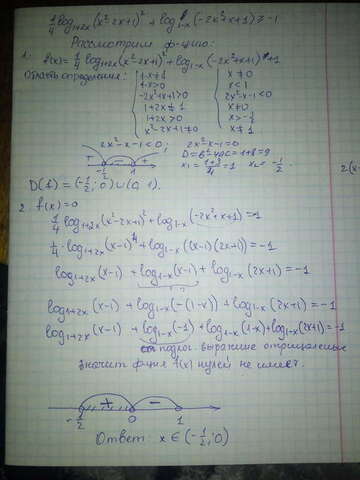 1/4 log₁₊₂ₓ(x²-2x+1)² + log₁₋ₓ(-2x²+x+1) ≥ -1
Рассмотрим ф-цию:
1. f(x) = 1/4 log₁₊₂ₓ(x²-2x+1)² + log₁₋ₓ(-2x²+x+1)+1
Область определения:
1-x≠1
1-x>0
-2x²+x+1>0
1+2x≠1
1+2x>0
x²-2x+1≠0
x≠0
x<1
2x²-x-1<0
x≠0
x>-1/2
x≠1
2x²-x-1<0;
2x²-x-1=0
D=b²-4ac=1+8=9
x₁=(1+3)/4=1 x₂=-1/2.
+ - +
-1/2 1
D(f)=(-1/2; 0)∪(0; 1).
2. f(x)=0
1/4 log₁₊₂ₓ(x²-2x+1)² + log₁₋ₓ(-2x²+x+1)=-1
1/4·log₁₊₂ₓ(x-1)⁴ + log₁₋ₓ((x-1)(2x+1))=-1
log₁₊₂ₓ(x-1) + log₁₋ₓ(x-1) + log₁₋ₓ(2x+1)=-1
log₁₊₂ₓ(x-1) + log₁₋ₓ(-(1-x)) + log₁₋ₓ(2x+1)=-1
log₁₊₂ₓ(x-1) + log₁₋ₓ(-1) + log₁₋ₓ(1-x) + log₁₋ₓ(2x+1)=-1
подлог. выражение отрицательно
значит ф-ция f(x) нулей не имеет.
+ -
-1/2 0 1
Ответ: x∈(-1/2; 0)